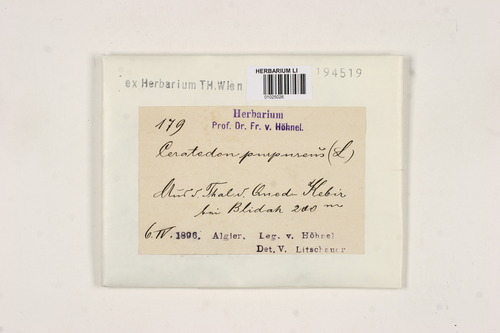 HERBARIUM LI
01025026
194519
ex Herbarium TH.Wien
Herbarium
179 Prof. Dr. Fr. v. Höhnel.
Ceratodon purpureus (L)
Thal d. Oued Kebir
bei Blidah 200 m
6. IV. 1896. Algier. Leg. v. Höhnel
Det. V. Litschauer